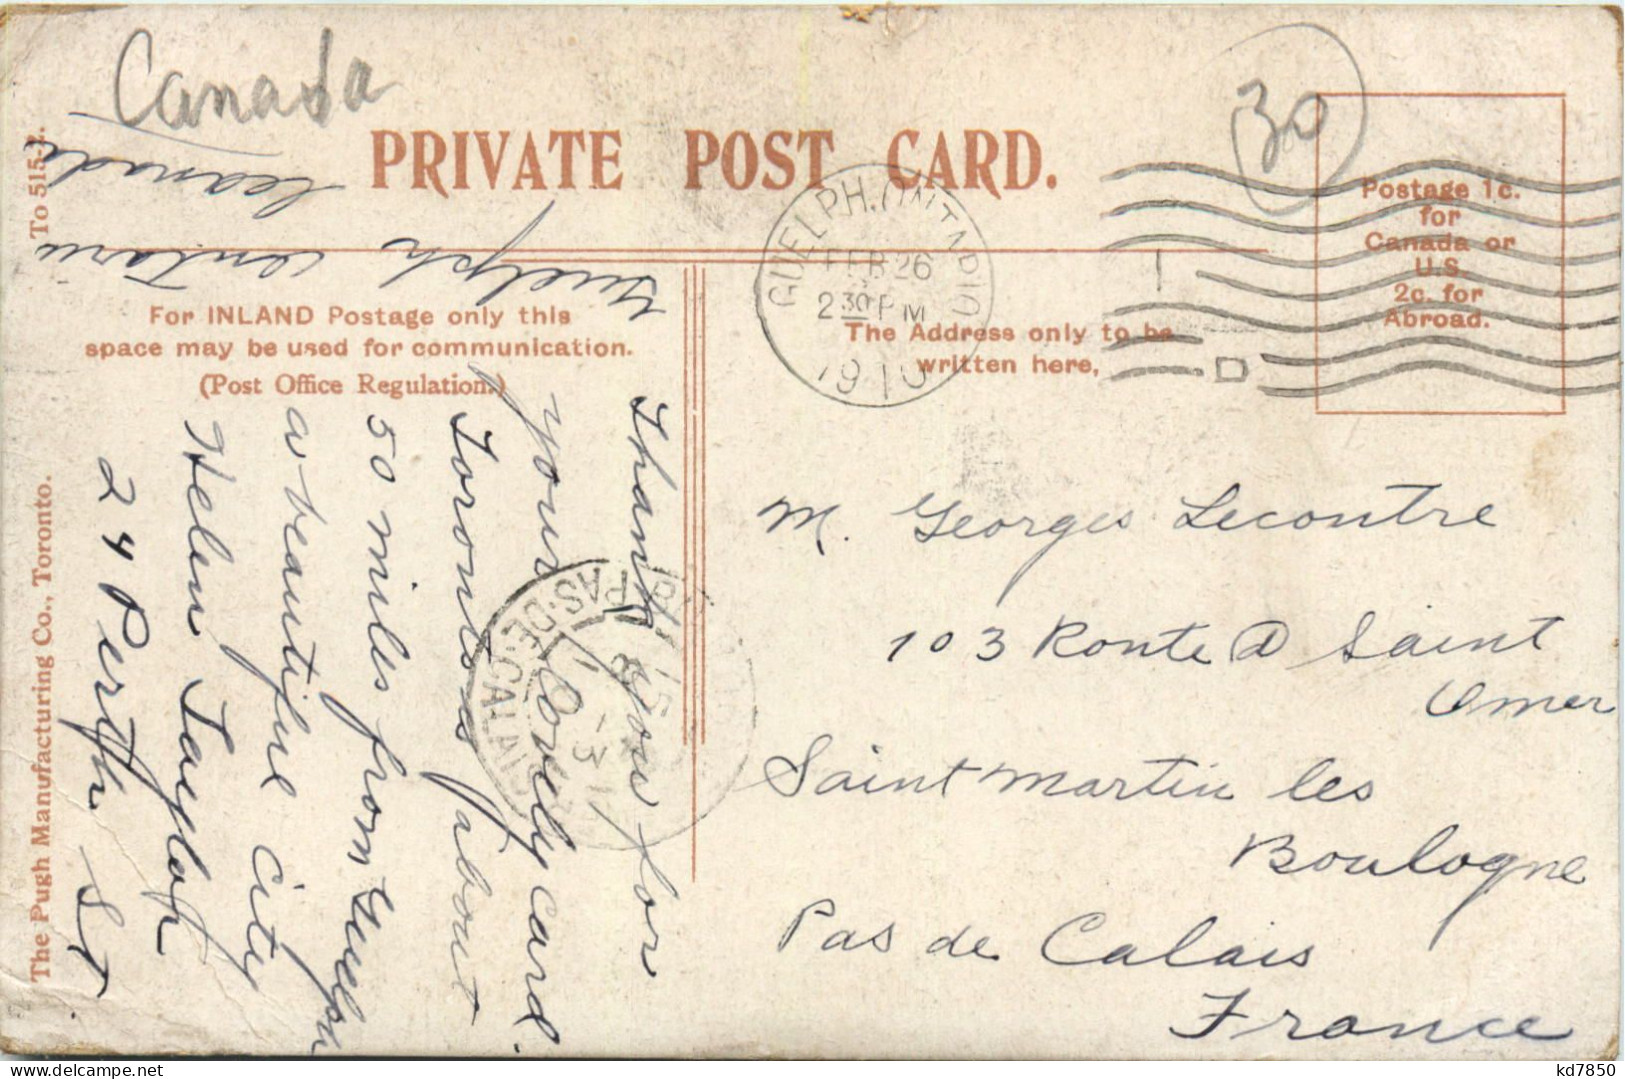 Canada
30
PRIVATE POST CARD.
To 515-2.
The Pugh Manufacturing Co., Toronto.
For INLAND Postage only this
space may be used for communication.
(Post Office Regulation.)
GUELPH, ONTARIO
FEB 26
2 30 PM
1910
Postage 1c.
for
Canada or
U.S.
2c. for
Abroad.
The Address only to be
written here.
Thank you for
your lovely card.
Toronto is about
50 miles from Guelph
a beautiful city
Helen Taylor
24 Perth ST
Guelph Ontario
Canada
PAS-DE-CALAIS
M. Georges Lecontre
103 Route D Saint
Omer
Saint Martin les
Boulogne
Pas de Calais
France
kd7850